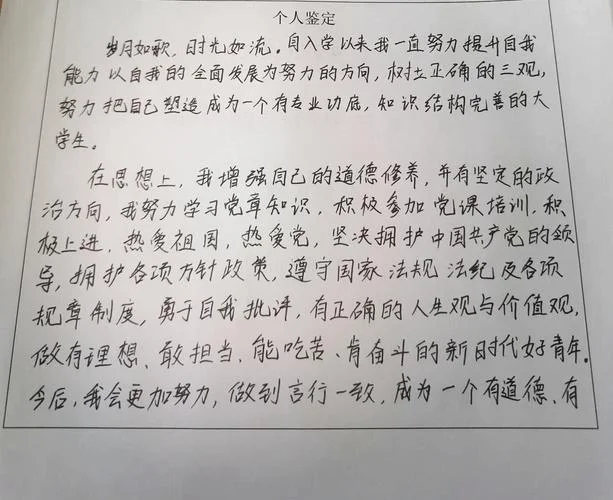 个人鉴定
岁月如歌，时光如流。自入学以来我一直努力提升自我
能力以自我的全面发展为努力的方向，树立正确的三观，
努力把自己塑造成为一个有专业功底，知识结构完善的大
学生。
在思想上，我增强自己的道德修养，并有坚定的政
治方向，我努力学习党章知识，积极参加党课培训，积
极上进，热爱祖国，热爱党，坚决拥护中国共产党的领
导，拥护各项方针政策，遵守国家法规法纪及各项
规章制度，勇于自我批评，有正确的人生观与价值观，
做有理想、敢担当、能吃苦、肯奋斗的新时代好青年。
今后，我会更加努力，做到言行一致，成为一个有道德、有